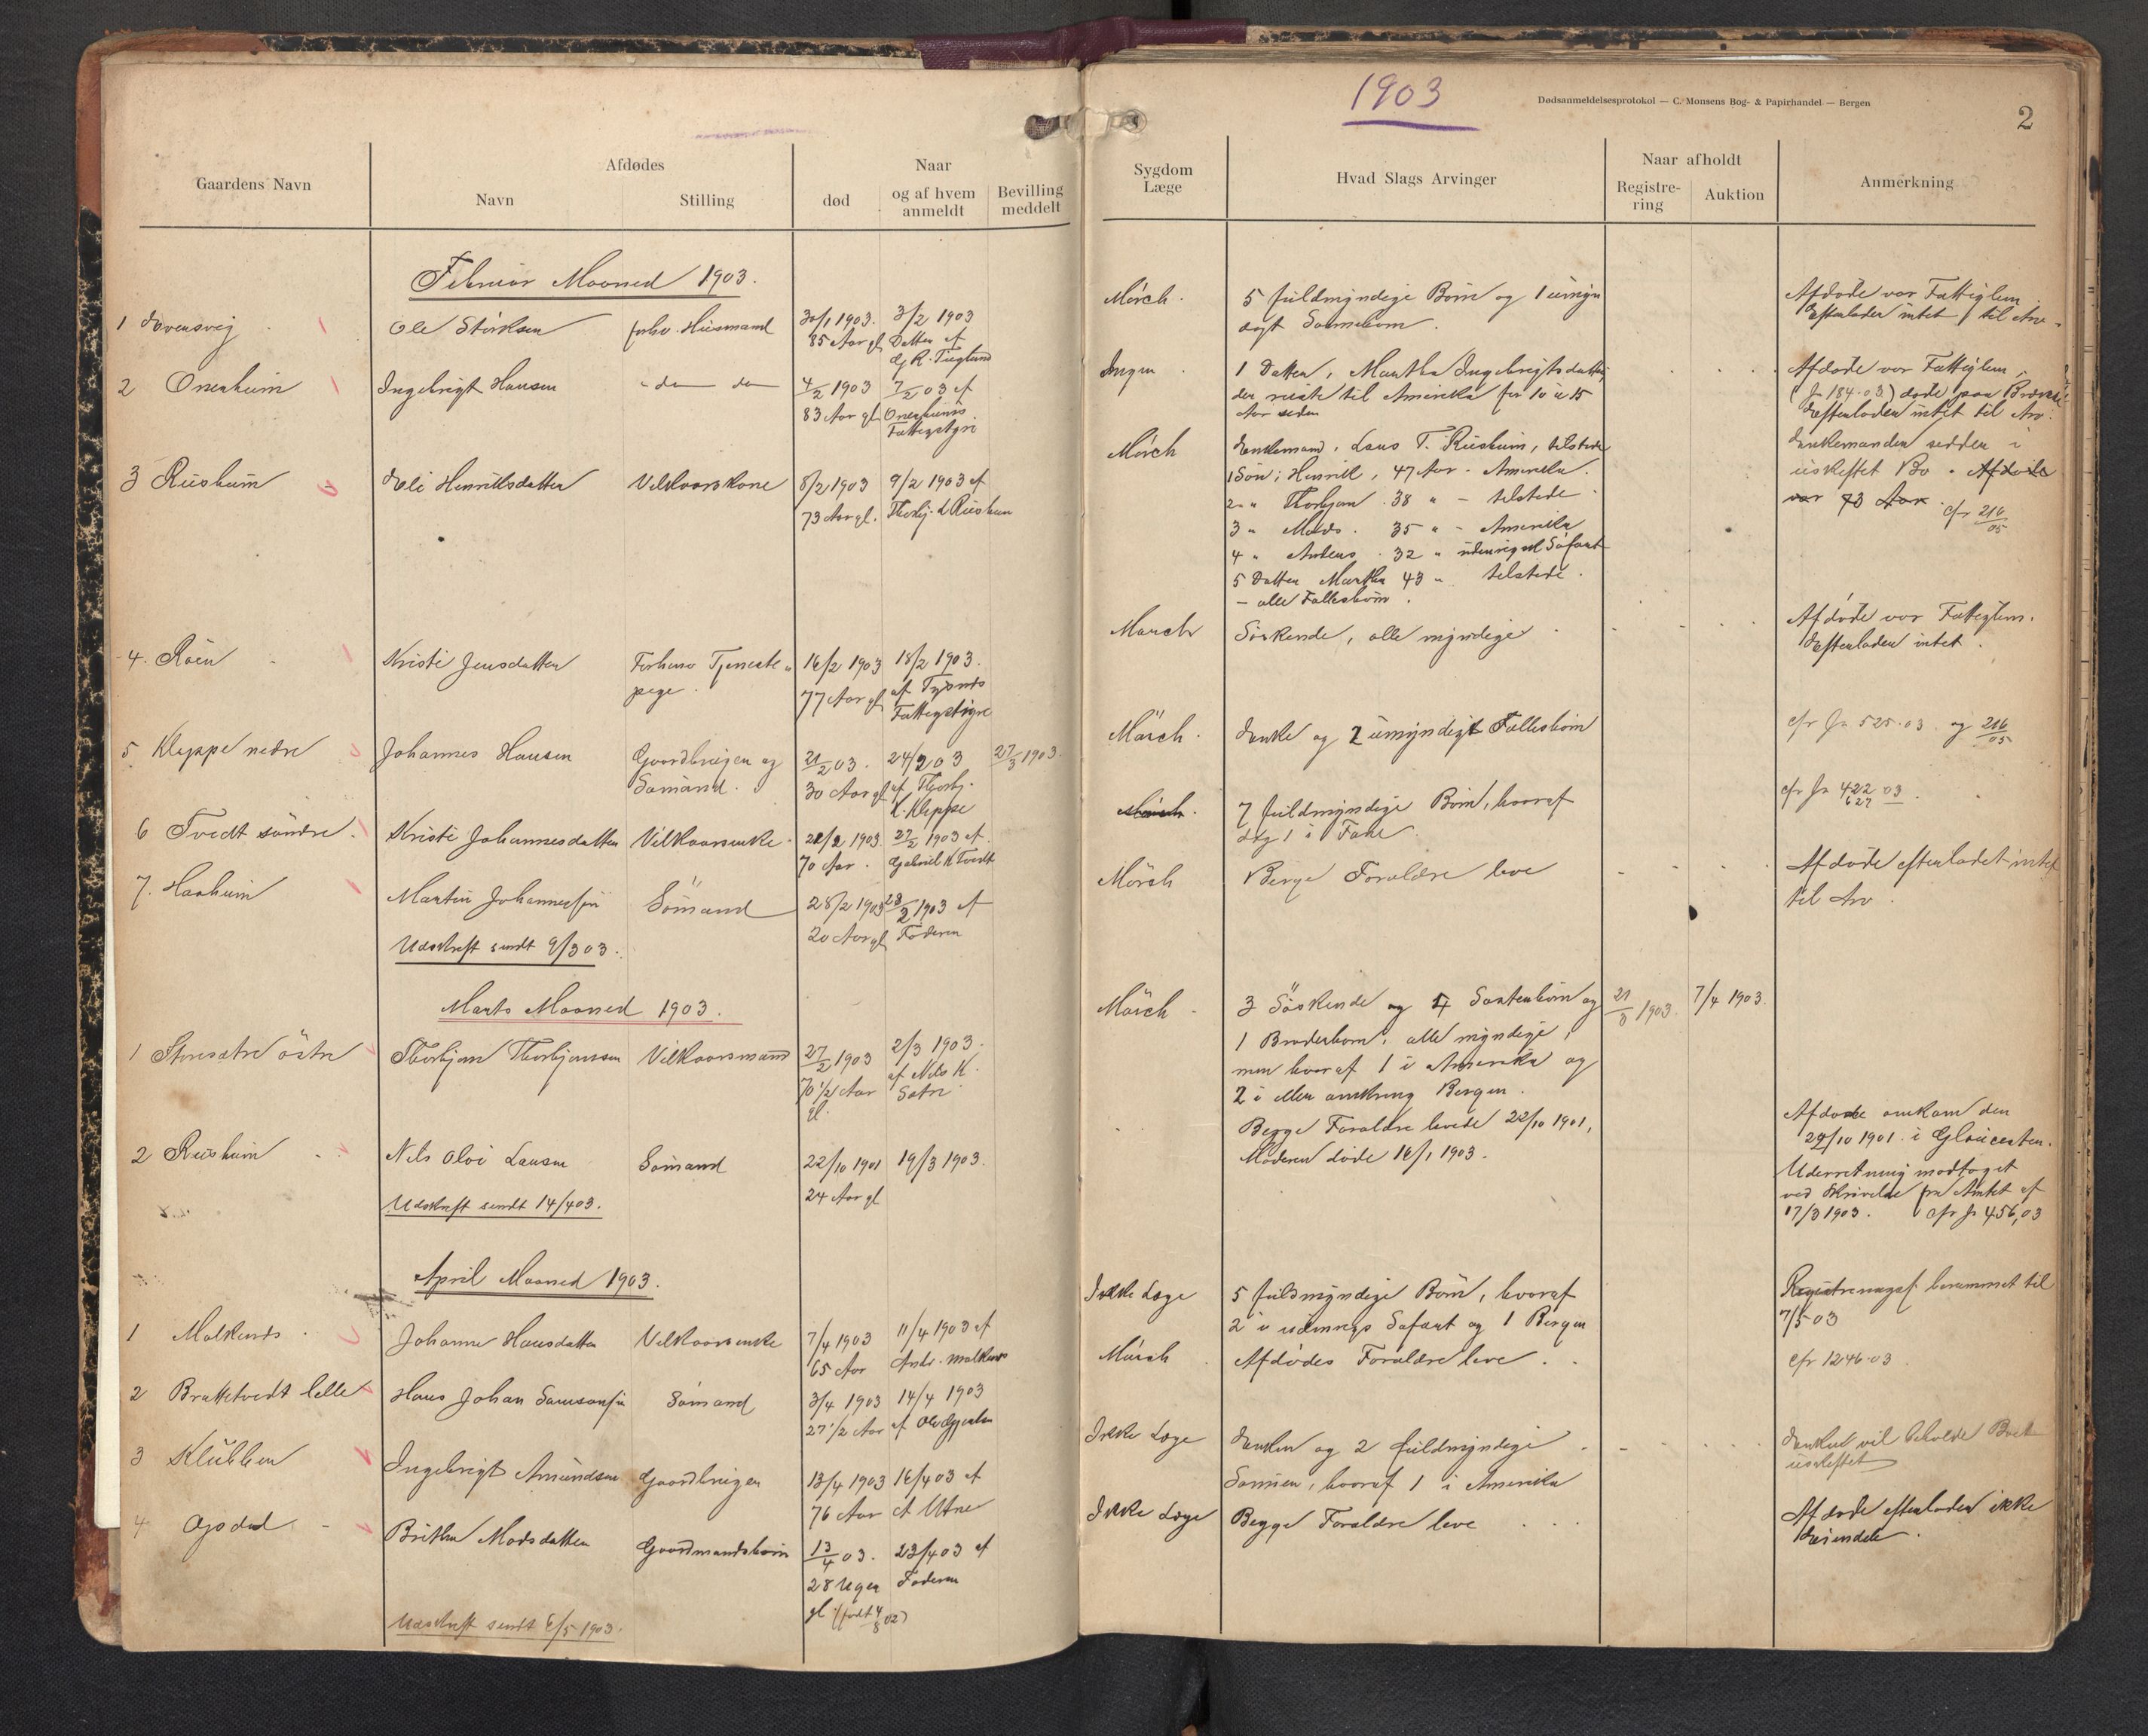 1903
Dødsanmeldelsesprotokol — C. Monsens Bog- & Papirhandel — Bergen
2
Gaardens Navn
Afdødes
Navn
Stilling
Naar
død
og af hvem anmeldt
Bevilling meddelt
Sygdom Læge
Hvad Slags Arvinger
Naar afholdt
Registre-ring
Auktion
Anmerkning
Februar Maaned 1903.
1 Ole Størksen forhv. Husmand 30/1 1903. 3/2 1903
85 Aar gl Datter af
Mørch. 5 fuldmyndige Børn og 1 umyn
digt Sønnebarn.
Afdøde var Fattiglem.
Efterlader intet til Arv.
2 Onerheim Ingebrigt Hansen do do 4/2 1903 7/2 03 af
83 Aar gl Onerheims
Fattigstyre
Ingen 1 Datter, Martha Ingebrigtsdatter,
der reiste til Amerika for 10 à 15
Aar siden
Afdøde var Fattiglem.
(Jr 184.03) døde paa
Efterlader intet til Arv.
3 Rusheim Eli Henriksdatter Vilkaarskone 8/2 1903 9/2 1903 af
73 Aar gl. Thorbj. L Rusheim
Mørch Enkemand, Lars T. Rusheim, tilstede
1 Søn: Henrik, 47 Aar - Amerika.
2 " Thorbjørn 38 " - tilstede
3 " Mads. 35 " - Amerika
4 " Anders. 32 " udenrigsk Søfart
5 Datter Martha 43 " tilstede.
- alle Fællesbørn.
Enkemanden sidder i
uskiftet Bo. Afdøde
var 73 Aar. cfr 216/05
4. Røen Kristi Jensdatter Forhenv. Tjeneste
pige. 16/2 1903 18/2 1903.
77 Aar gl af Tysnes
Fattigstyre
Søskende, alle myndige
Afdøde var Fattiglem.
Efterlader intet.
5. Kleppe nedre Johannes Hansen Gaardbruger og
Sømand. 21/2 03. 24/2 03 27/3 1903.
30 Aar gl af Thorbj.
K. Kleppe
Mørch. Enke og 2 umyndige Fællesbørn
cfr Jr 525.03 og 216/05
6 Tvedt søndre. Kristi Johannesdatter Vilkaarsenke 1903. 1903 af
70 Aar. Gabriel K Tvedt
Mørch. 7 fuldmyndige Børn, hvoraf
dog 1 i
cfr Jr 422 03
627
7. Haaheim Martin Johannessøn Sømand 28/2 1903 28/2 1903 af
20 Aar gl Faderen
Mørch Begge Forældre leve
Afdøde efterladet intet
til Arv.
Udskrift sendt 9/3 03.
Marts Maaned 1903.
1 Thorbjørn Thorbjørnsen Vilkaarsmand 27/2 1903 2/3 1903.
70 1/2 Aar af Nils K.
gl. Sætre
Mørch 3 Søskende og 4 Søsterbørn og 21/3 1903. 7/4 1903.
1 Broderbarn, alle myndige,
men hvoraf 1 i Amerika og
2 i eller omkring Bergen.
2 Rusheim Nils Olai Larsen Sømand 22/10 1901 19/3 1903.
24 Aar gl
Begge Forældre levede 22/10 1901,
Moderen døde 16/1 1903.
Afdøde omkom den
22/10 1901 i Gloucester.
Underretning modtaget
ved Skrivelse fra Amtet af
17/3 1903. Cfr Jr 456,03
Udskrift sendt 14/4 03.
April Maaned 1903.
1 Malkenes Johanne Hansdatter Vilkaarsenke 7/4 1903 11/4 1903 af
65 Aar Andr. Malkenes
Ikke Læge 5 fuldmyndige Børn, hvoraf
2 i udenrigs Søfart og 1 Bergen
berammet til
7/5 03
2 Brattetvedt lille Hans Johan Samsonsøn Sømand 3/4 1903 14/4 1903
27 1/2 Aar
Mørch Afdødes Forældre leve.
cfr 1246.03
3 Klubben Ingebrigt Amundsen Gaardbruger 13/4 1903 16/4 03 af
76 Aar A Utne
Ikke Læge Enken og 2 fuldmyndige
Sønner, hvoraf 1 i Amerika
Enken vil beholde Boet
uskiftet
4 Opdal Britha Madsdatter Gaardmandsbarn 13/4 03. 23/4 03 af
28 Uger Faderen
gl. (født 02)
Ikke Læge Begge Forældre leve
Afdøde efterlader ikke
Eiendele.
Udskrift sendt 6/5 1903.